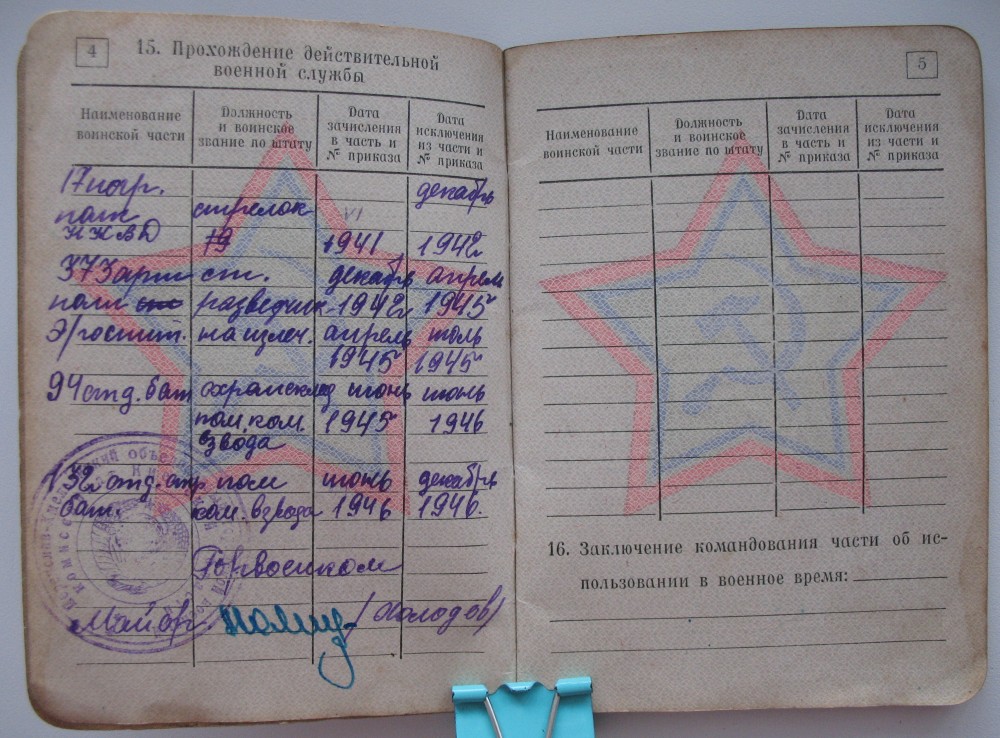 4
15. Прохождение действительной
военной службы
Наименование воинской части
Должность и воинское звание по штату
Дата зачисления в часть и № приказа
Дата исключения из части и № приказа
17 погр. декабрь
полк стрелок VI
НКВД 19 1941 1942
373 арт ст. декабрь апрель
полк разведчик 1942 1945
Э/госпит. на излеч. апрель
1945 1945
94 отд. бат июнь июнь
пом. ком. 1945 1946
взвода
132 отд. стр пом июнь декабрь
бат. ком. взвода 1946 1946.
Горвоенком
Майор (Холодов)
5
Наименование воинской части
Должность и воинское звание по штату
Дата зачисления в часть и № приказа
Дата исключения из части и № приказа
16. Заключение командования части об ис-
пользовании в военное время: